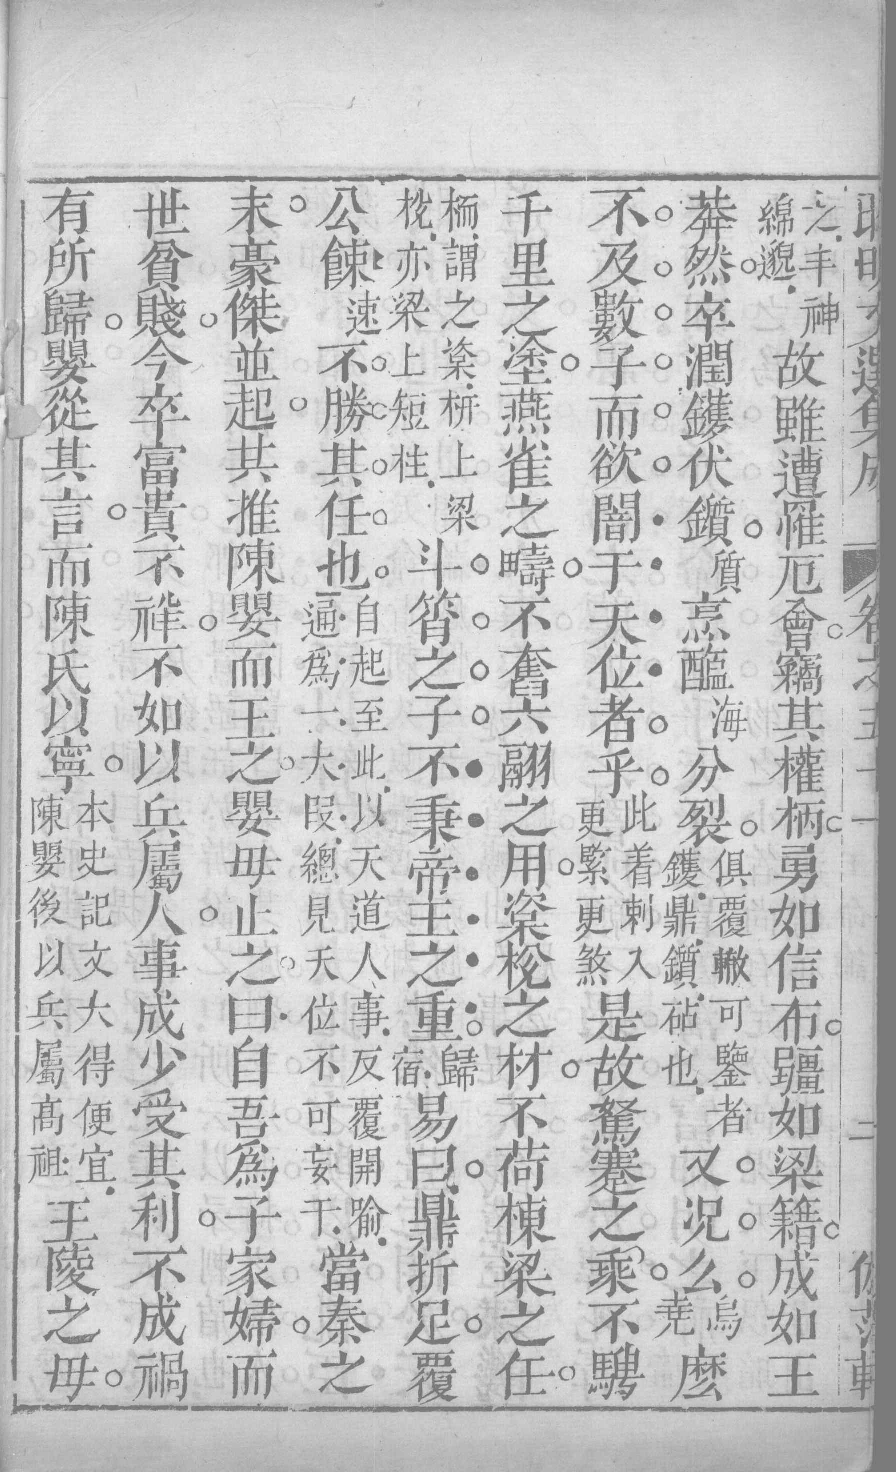 昭明文選集成 卷之五十一 二 仿范軒
之丰神綿邈故雖遭罹厄會竊其權柄勇如信布彊如梁籍成如王
莽然卒潤鑊伏鑕質烹醢海分裂俱覆轍可鑒者鑊鼎鑕砧也又況么烏堯麽
不及數子而欲闇干天位者乎此着刺入更緊更煞是故駑蹇之乘不騁
千里之塗燕雀之疇不奮六翮之用楶梲之材不荷棟梁之任
栭謂之楶栟上梁梲亦梁上短柱斗筲之子不秉帝王之重歸宿易曰鼎折足覆
公餗速不勝其任也自起至此以天道人事反覆開喻遍為一大段總見天位不可妄干當秦之
末豪傑並起共推陳嬰而王之嬰母止之曰自吾為子家婦而
世貧賤今卒富貴不祥不如以兵屬人事成少受其利不成禍
有所歸嬰從其言而陳氏以寧本史記文大得便宜陳嬰後以兵屬高祖王陵之母